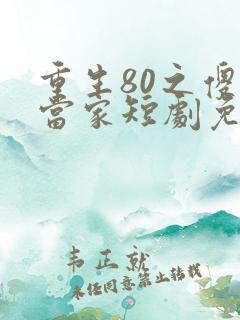 重生80之傻
當家短劇免
韦正就
未经同意禁止转载